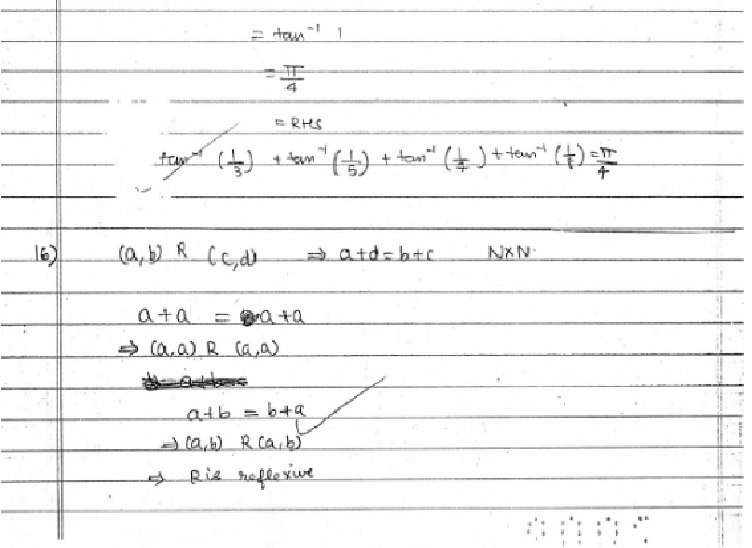 = tan⁻¹ 1
= π/4
= RHS
tan⁻¹ (1/3) + tan⁻¹ (1/5) + tan⁻¹ (1/7) + tan⁻¹ (1/8) = π/4
16) (a,b) R (c,d) ⇒ a+d=b+c N×N.
a+a = a+a
⇒ (a,a) R (a,a)
a+b = b+a
⇒ (a,b) R (a,b)
⇒ R is reflexive